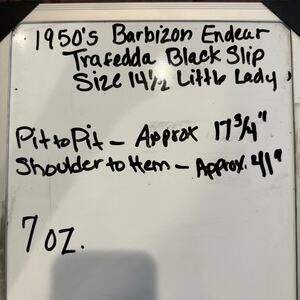 1950's Barbizon Endear
Trafedda Black Slip
Size 14 1/2 Little Lady
Pit to Pit - Approx 17 3/4"
Shoulder to Hem - Approx. 41"
7 oz.